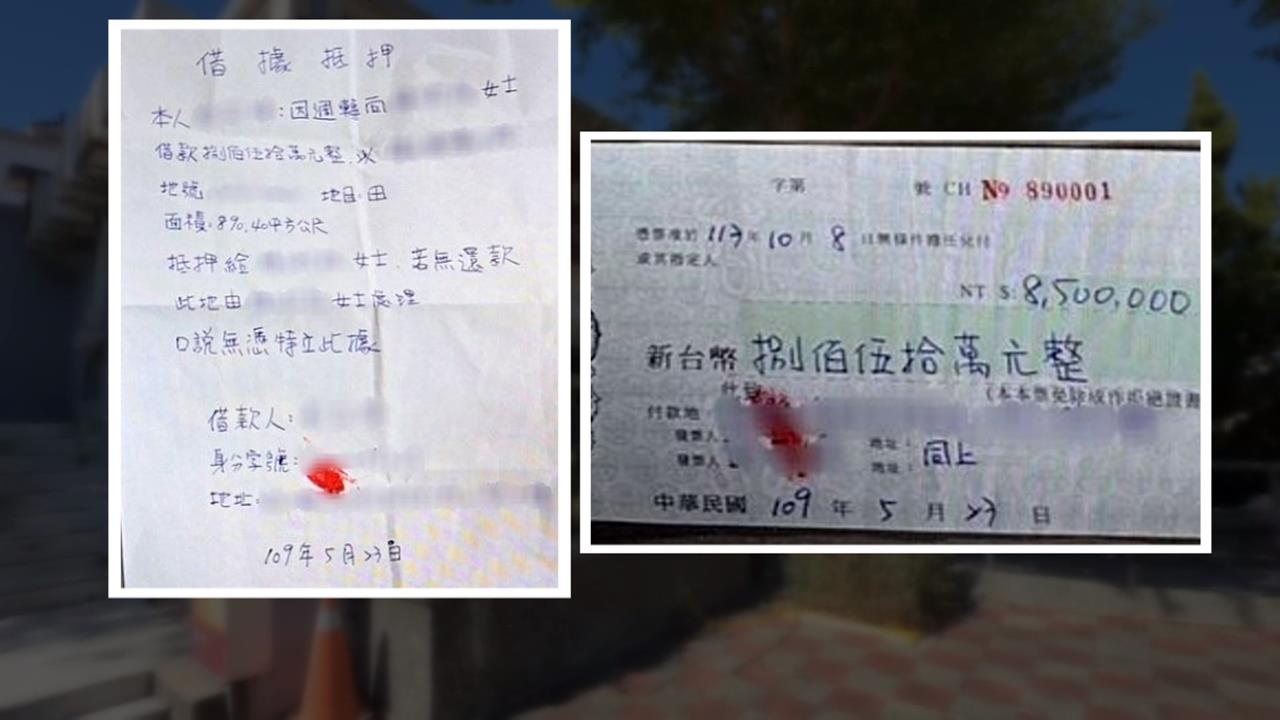 借據抵押
本人 :因週轉向 女士
借款捌佰伍拾萬元整.以
地號 地目:田
面積:890.40平方公尺
抵押給 女士.若無還款
此地由 女士處理
口說無憑特立此據
借款人:
身分字號:
地址:
109年5月23日
字第 號 CH No 890001
憑票准於 113年10月8日無條件擔任兌付
或其指定人
NT $: 8,500,000
新台幣 捌佰伍拾萬元整
(本本票免除成作拒絕證書
付款地:
發票人 地址: 同上
發票人 地址:
中華民國 109年5月23日